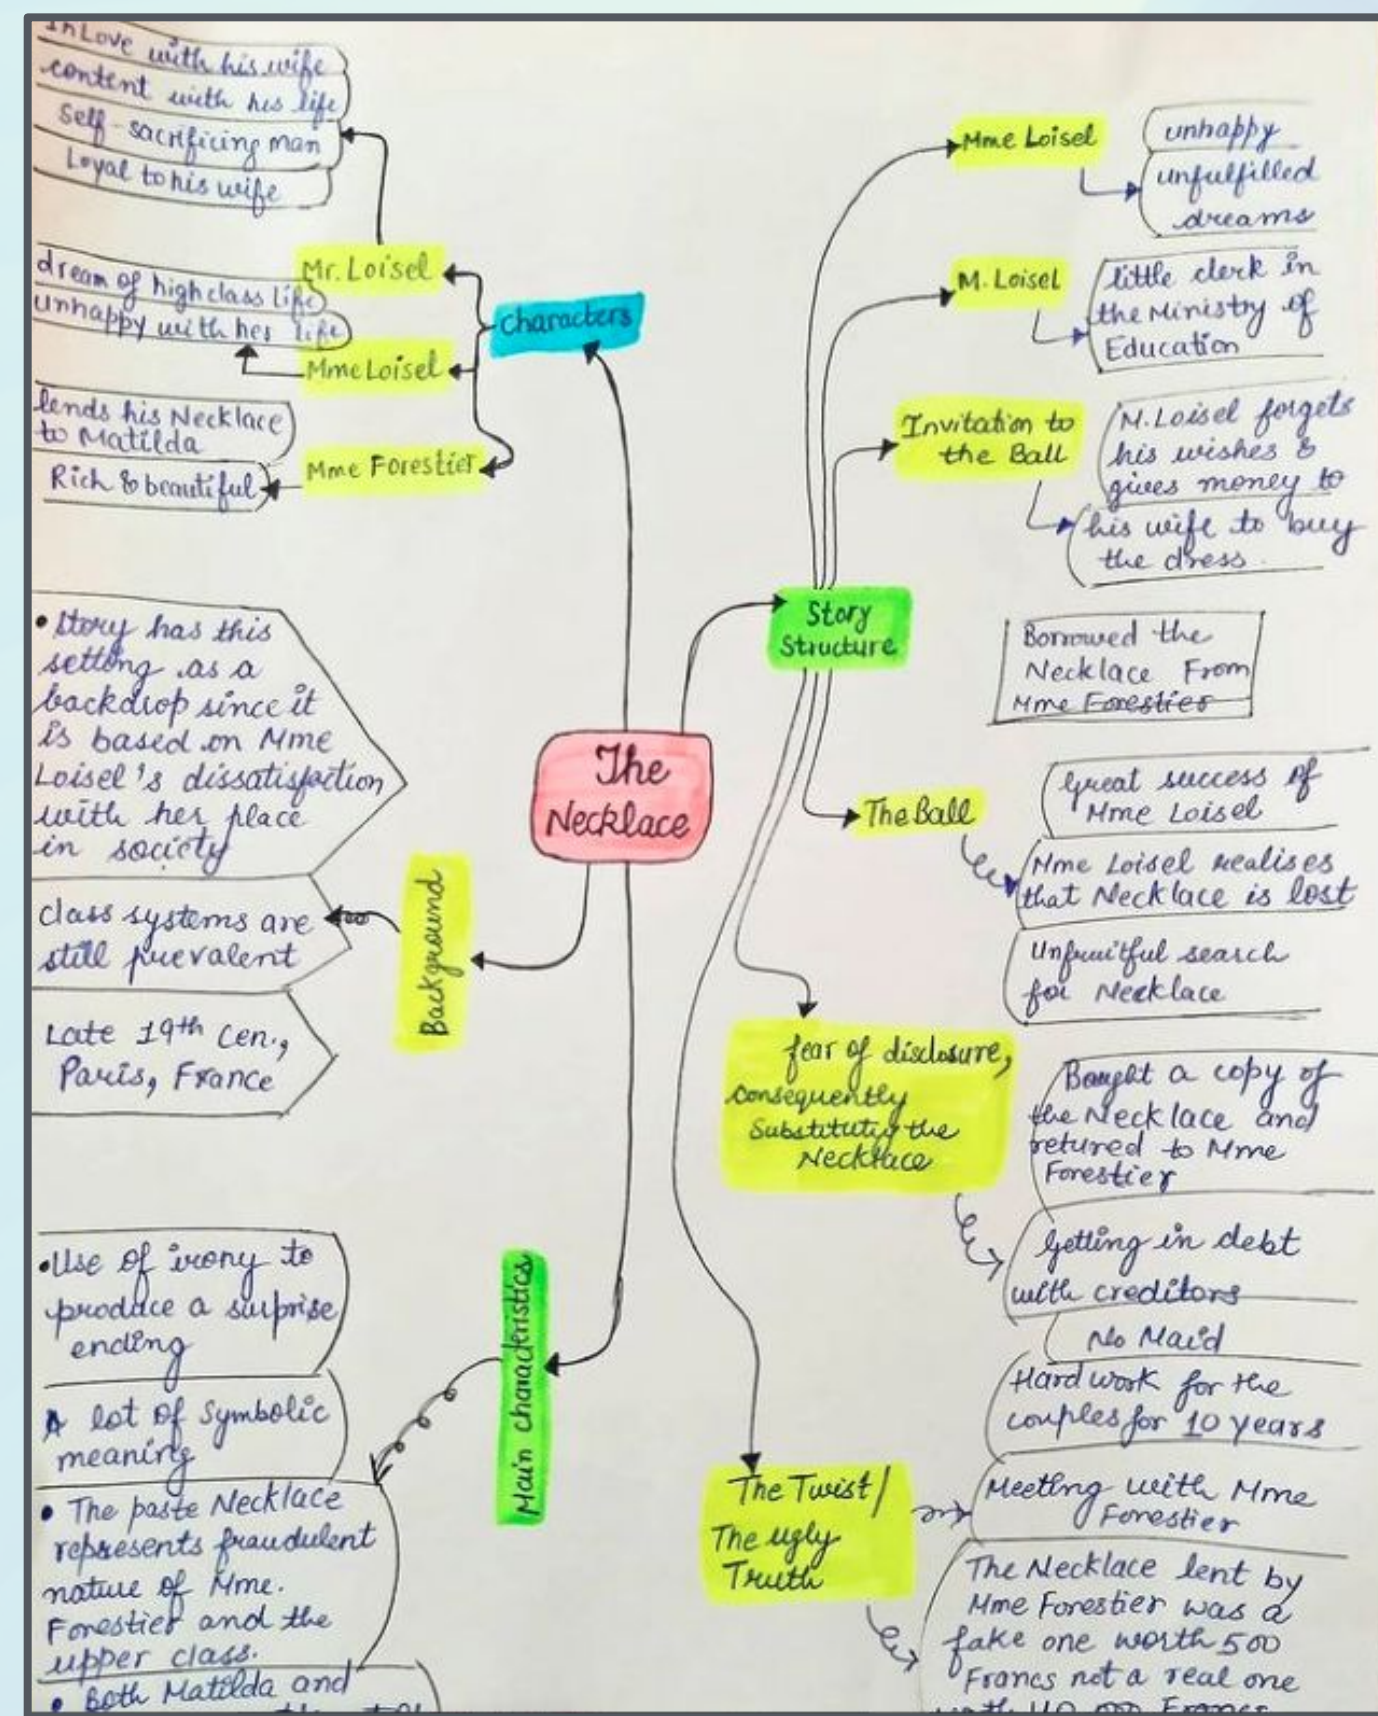 The
Necklace
characters
Mr. Loisel
In Love with his wife
content with his life
Self-sacrificing man
Loyal to his wife
Mme Loisel
dream of high class life
unhappy with her life
Mme Forestier
lends his Necklace
to Matilda
Rich & beautiful
Background
• Story has this
setting as a
backdrop since it
is based on Mme
Loisel's dissatisfaction
with her place
in society
class systems are
still prevalent
Late 19th Cen.,
Paris, France
Main characteristics
• Use of irony to
produce a surprise
ending
A lot of Symbolic
meaning
• The paste Necklace
represents fraudulent
nature of Mme.
Forestier and the
upper class.
• Both Matilda and
Story
Structure
Mme Loisel
unhappy
unfulfilled
dreams
M. Loisel
little clerk in
the Ministry of
Education
Invitation to
the Ball
M. Loisel forgets
his wishes &
gives money to
his wife to buy
the dress.
Borrowed the
Necklace From
Mme Forestier
The Ball
Great success of
Mme Loisel
Mme Loisel realises
that Necklace is lost
Unfruitful search
for Necklace
fear of disclosure,
consequently
Substitutig the
Necklace
Bought a copy of
the Necklace and
retured to Mme
Forestier
Getting in debt
with creditors
No Maid
Hard work for the
couples for 10 years
The Twist/
The ugly
Truth
Meeting with Mme
Forestier
The Necklace lent by
Mme Forestier was a
fake one worth 500
Francs not a real one